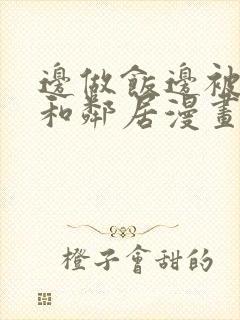 邊做飯邊被
和鄰居漫畫
橙子會甜的